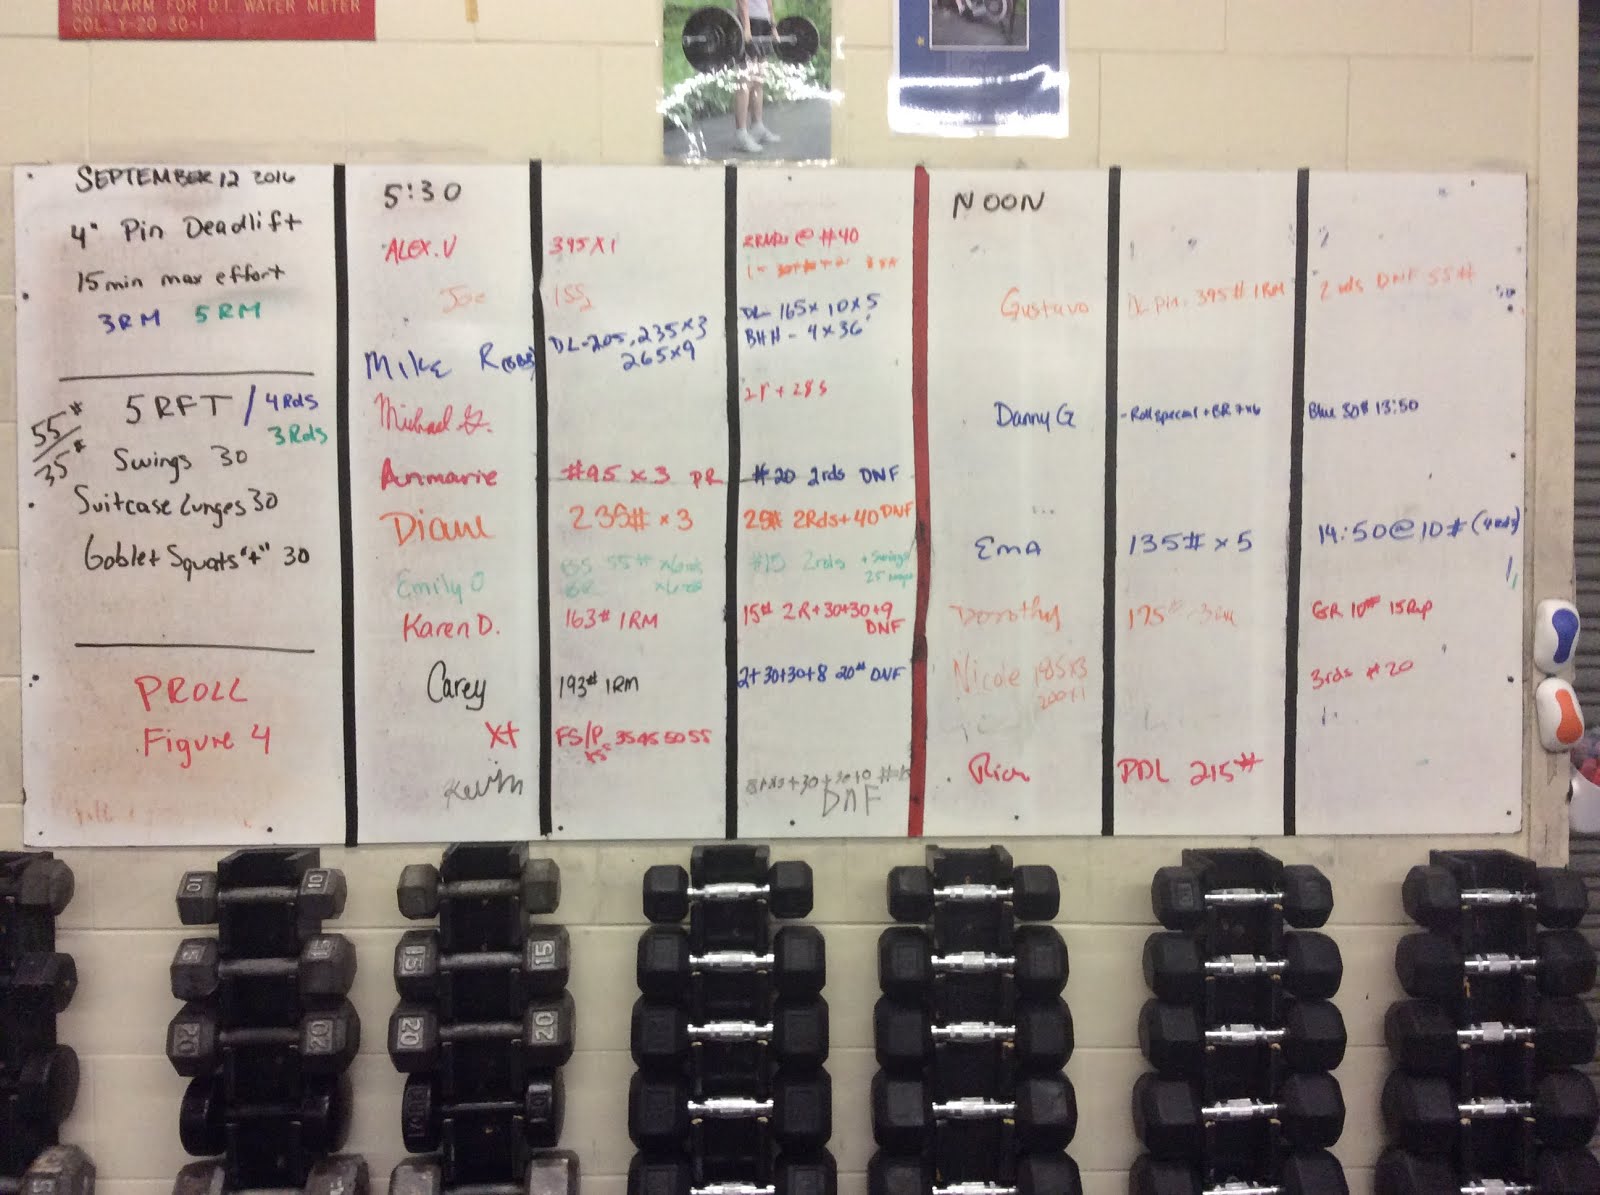 ROTALARM FOR D.I. WATER METER
COL. Y-20 30-1
SEPTEMBER 12 2016
4" Pin Deadlift
15 min max effort
3RM 5RM
55# / 35#
5 RFT / 4 Rds
3 Rds
Swings 30
Suitcase Lunges 30
Goblet Squats "+" 30
PROLL
Figure 4
5:30
ALEX.V 395 x 1 @ #40
Joe 155
Mike R DL-205, 235x3
265x9
DL- 165x 10x5
BHH - 4x36'
Michael G. 2r + 28s
Anmarie #95 x 3 PR #20 2rds DNF
Diane 235# x 3 25# 2Rds+40 DNF
Emily O 55# #15 2rds + Swings
25
Karen D. 163# 1RM 15# 2R+30+30+9
DNF
Carey 193# 1RM 2+30+30+8 20# DNF
Xt FS/P 35 45 50 55
x5
Kevin
DNF
NOON
Gustavo DL pin. 395# 1RM 2 rds DNF 55#
Danny G - Roll special + BR 7x6 Blue 30# 13:50
EMA 135# x 5 14:50 @ 10# (4rds)
Dorothy 175# GR 10# 15Rep
Nicole 185x3
200x1
3rds #20
Rich PDL 215#
10 10
15
20 20
15 15
20 20